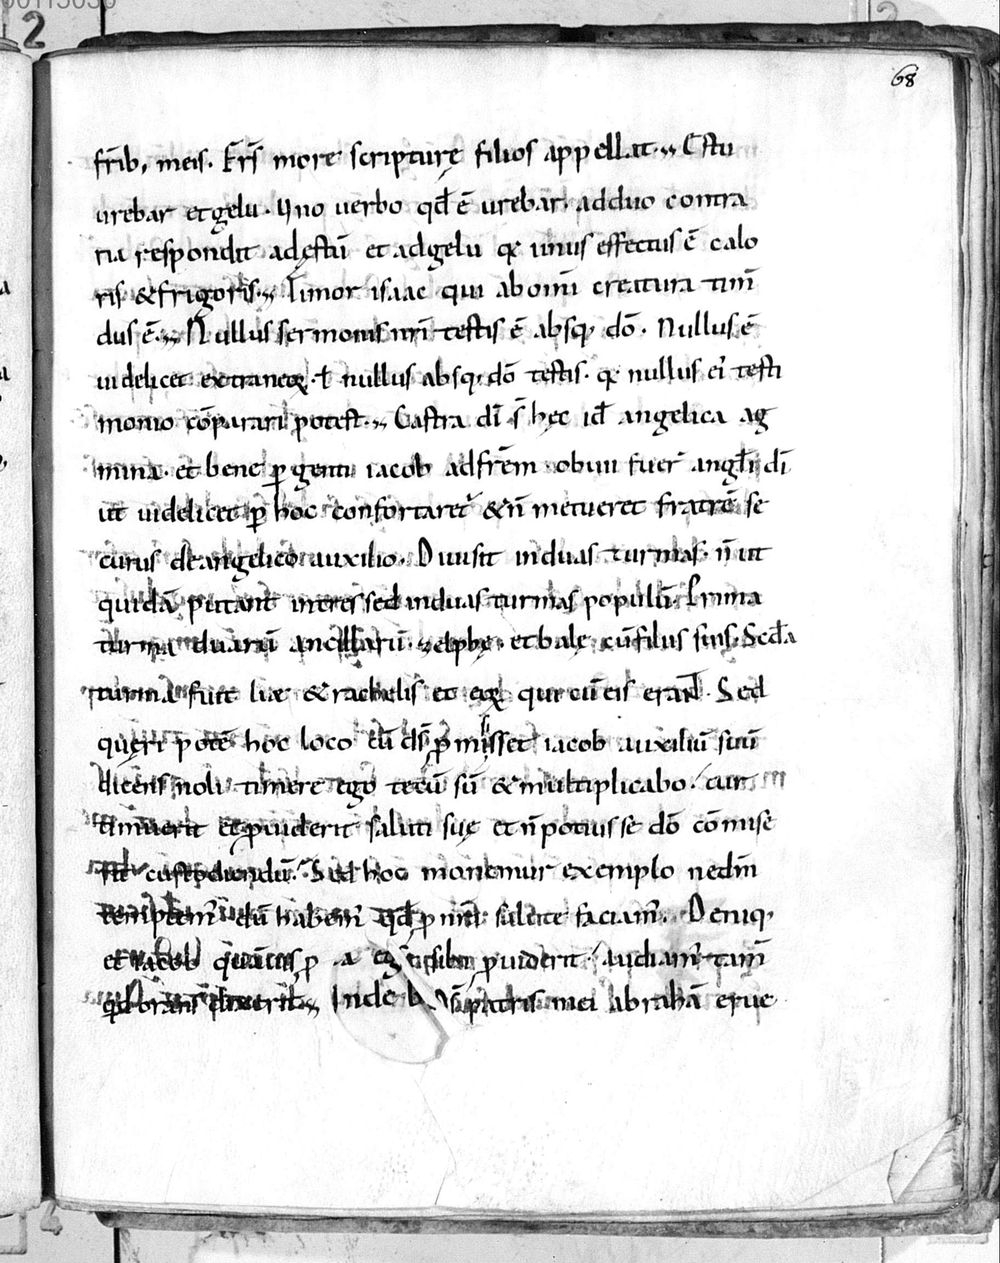 68
fr̄ib; meis. Fr̄s more scripturę filios appellat. Estu
urebar et gelu. Uno verbo qđ ē urebar, ad duo contra
ria respondit ad ęstū et ad gelu q; unus effectus ē calo
ris & frigoris. Timor isaac qui ab omī creatura tim̄
dus ē. Nullus sermonis nr̄i testis ē absq; dō. Nullus ē
videlicet extraneoꝝ. ł nullus absq; dō testis. q; nullus ei testi
monio cōparari potest. Castra dī s̄ hęc id angelica ag
mina. et bene ꝑgenti iacob ad frēm obvii fuer̄ angl̄i dī
ut videlicet ꝑ hoc confortaret̄ & n̄ metueret fratrē se
curus de angelico auxilio. Divisit in duas turmas. n̄ ut
quidā putant in tres sed in duas turmas populū. Prima
turma duarū ancillarū. zelphę. et balę cū filiis suis. Scđa
turma fuit lię & rachelis et eoꝝ qui cū eis erant. Sed
quęri potē hoc loco cū ds̄ ꝓmisisset iacob auxiliū suū
dicens noli timere ego tecū sū & multiplicabo. cur
timuerit et ꝓviderit saluti suę et n̄ potuisse dō cōmise
rit custodiendū. Sed hoc monemur exemplo ne dm̄
temptem̄ dū habem̄ qđ ꝓ nr̄a salute faciam̄. Deniq;
et iacob quāvis sibi ꝓviderit audiam̄ tam̄
qđ orans dixerit. Inde ds̄ patris mei abrahā erue